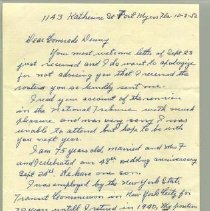 1143 Katherine St Fort Myers Fla 10-2-52
Dear Comrade Denny
Your most welcome letter of Sept 23
just received and I do want to apologize
for not advising you that I received the
you so kindly sent me.
I read your account of the reunion
in the National Tribune with much
pleasure and was very sorry I was
unable to attend but hope to be with
you next year.
I am 75 years old, married and Mrs F
and I celebrated our 48th wedding anniversary
Sept 21st. We have one son.
I was employed by the New York State
Transit Commission in New York City for
years until I retired in 1940.